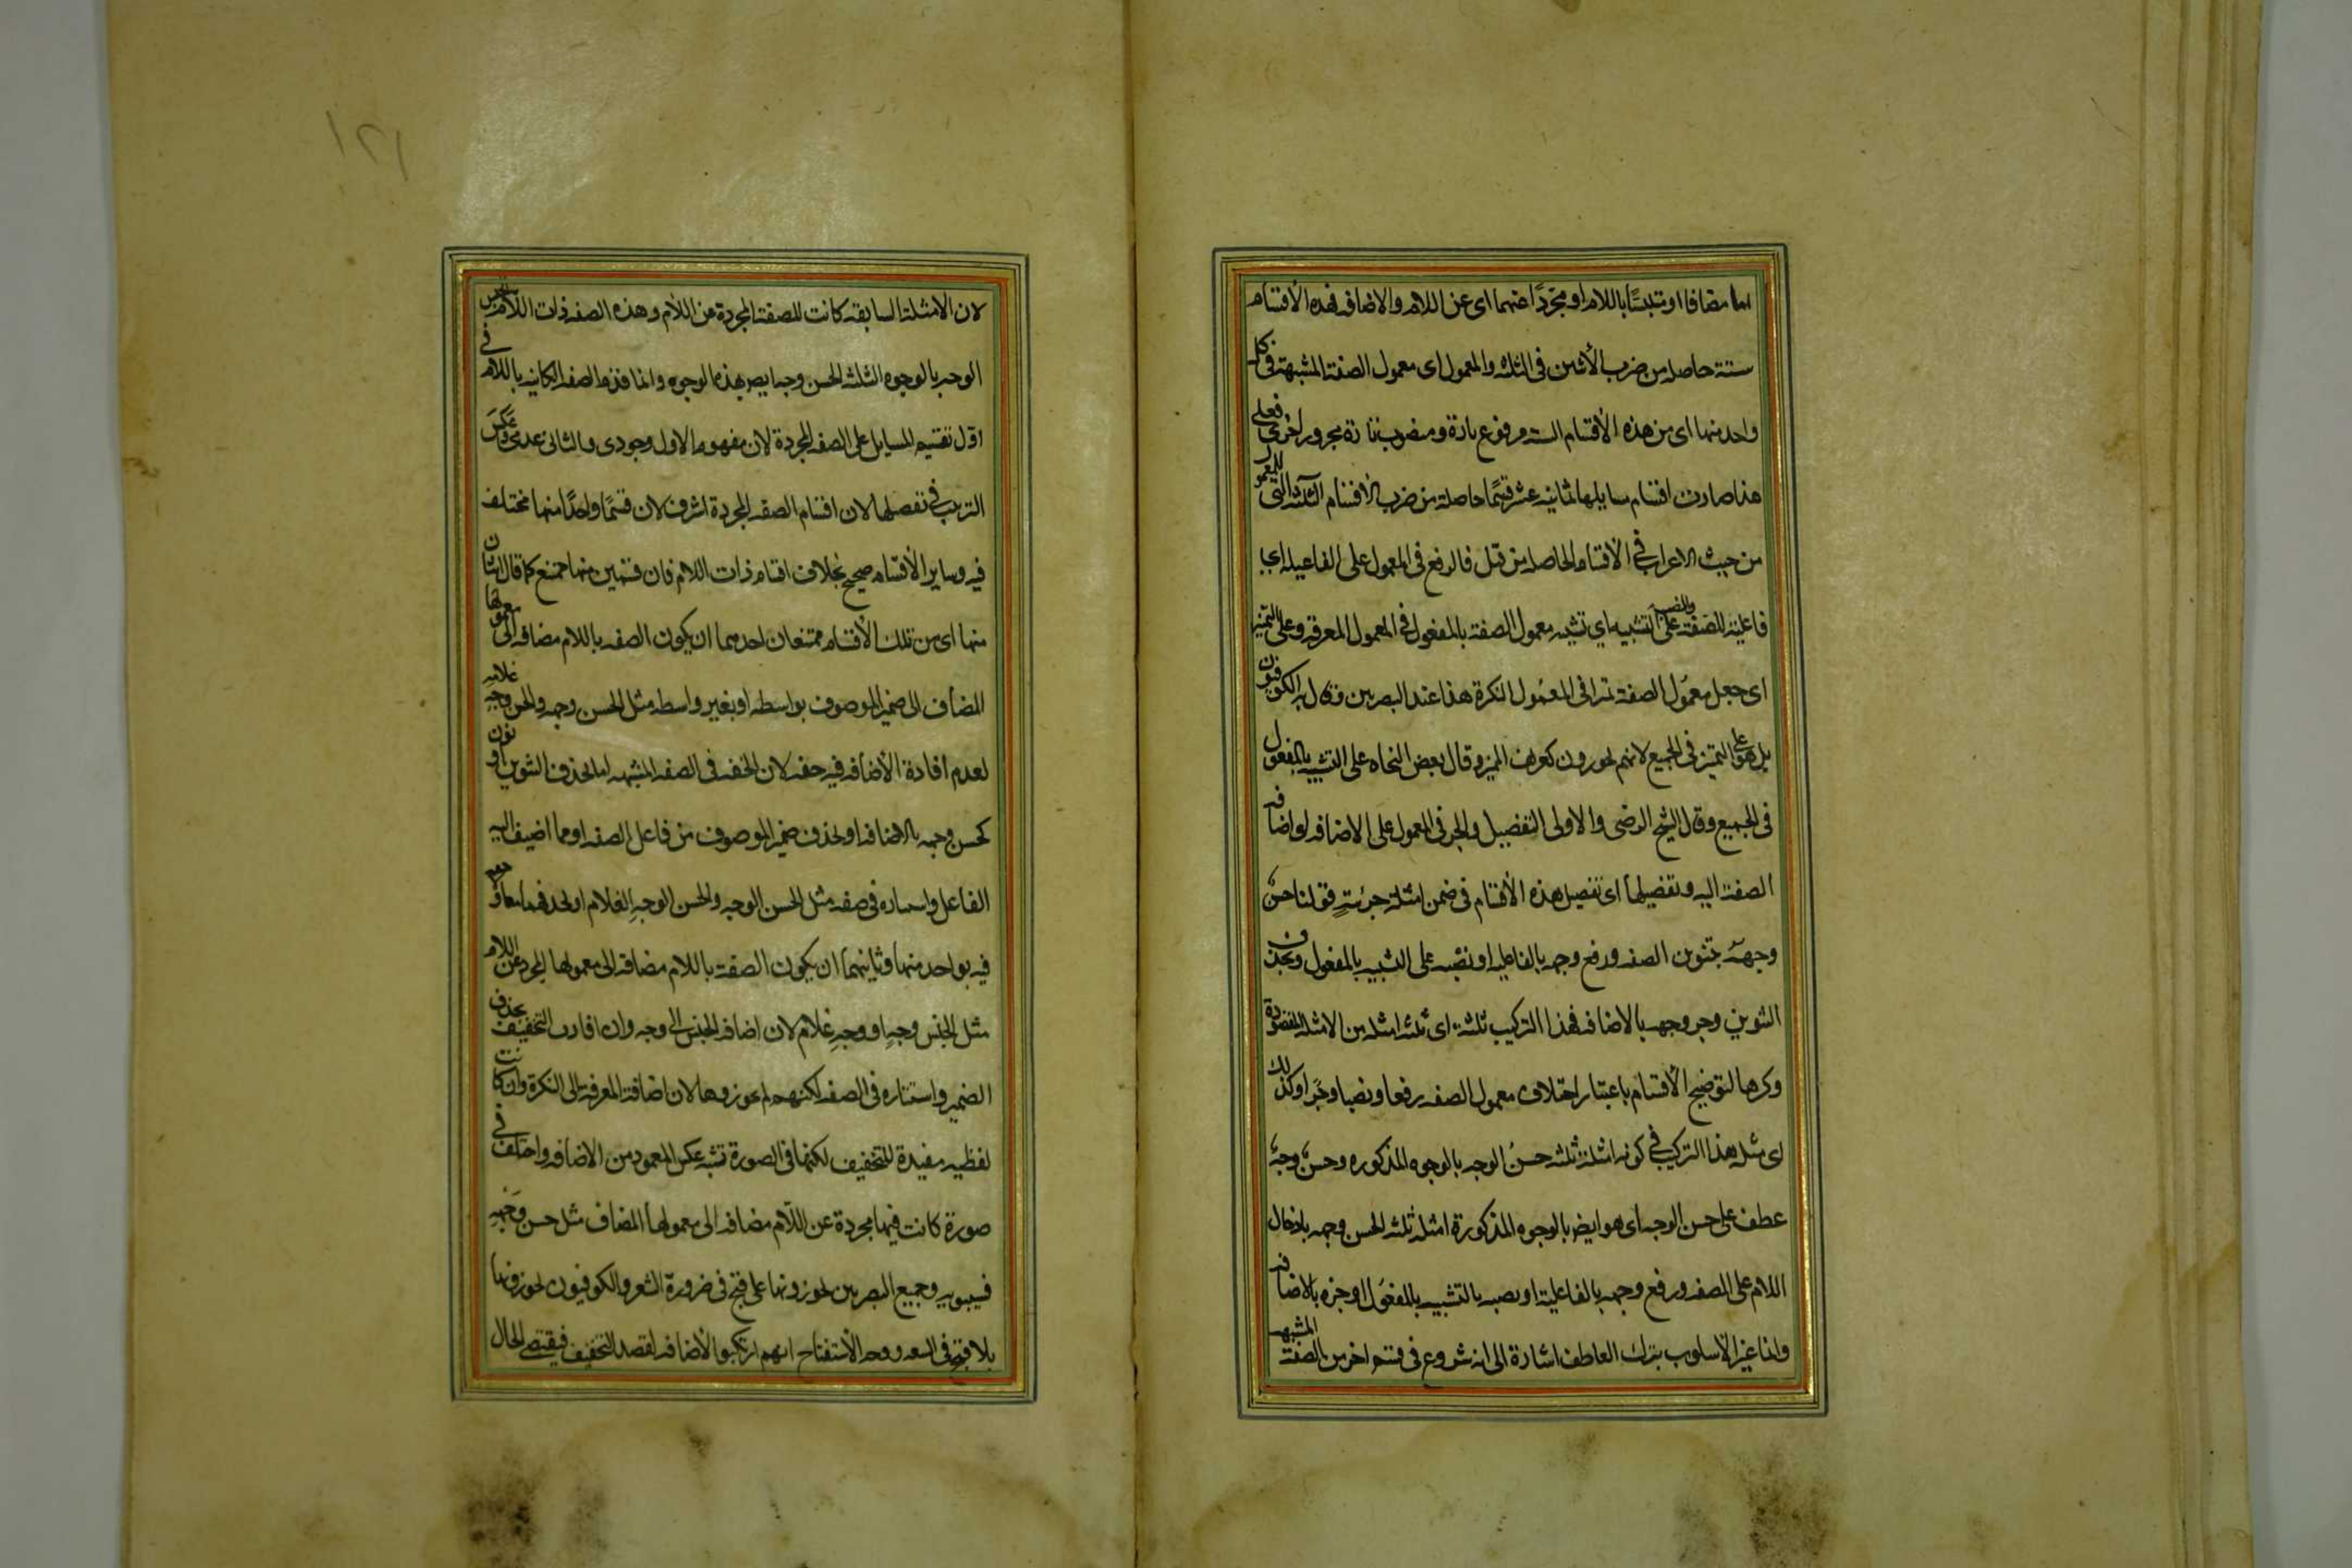 اما مضافا او متلبسًا باللام او مجردًا عنهما اى عن اللام والاضافه فهذه الأقسام
ستة حاصله من ضرب الأثنين فى الثلثه والمعمول اى معمول الصفة المشبهة فى كل
واحد منها اى من هذه الأقسام السته مرفوع تارة ومنصوب تارة ومجرور اخرى فعلى
هذا صارت اقسام مسايلها ثمانيه عشر قسمًا حاصلة من ضرب الاقسام الثلثه التى للمعمول
من حيث الاعراب فى الأقسام الحاصله من قبل فالرفع فى المعمول على الفاعيله اى
فاعلية للصفة والنصب على التشبيه اي تشبيه معمول الصفة بالمفعول فى المعمول المعرفة وعلى التميز
اى جعل معمول الصفة تمزا فى المعمول النكرة هذا عند البصريين وقال الكوفيون
بل هو على التميز فى الجميع لانهم يجوزون كعريف المميز وقال بعض النحاه على التشبيه بالمفعول
فى الجميع وقال الشيخ الرضى والاولى التفصيل والجر فى المعمول على الاضافه لواضافه
الصفة اليه وتفصيلها اى تفصيل هذه الأقسام فى ضمن امثلة جزئيةٍ قولنا حسنٌ
وجههُ بتنوين الصفه ورفع وجهه بالفاعليه او نصبه على التشبيه بالمفعول وبحذف
التنوين وجر وجهه بالاضافه فهذا التركيب ثلثة اى ثلثه امثله من الامثله المقصودة
وكرها لتوضيح الأقسام باعتبار اختلاف معمول الصفه رفعا ونصبا وجرا وكذلك
اى مثل هذا التركيب فى كونه امثلة ثلثه حسنُ الوجه بالوجوه المذكوره وحسنٌ وجهٌ
عطف على حسن الوجه اى هو ايضا بالوجوه المذكورة امثلة ثلثه الحسن وجهه بادخال
اللام على الصفه ورفع وجهه بالفاعلية او نصبه بالتشبيه بالمفعول او جره بالاضافه
وانما غير الأسلوب بترك العاطف اشارة الى انه شروع فى قسم اخر من الصفة المشبهه
لان الامثلة السابقه كانت للصفة المجردة عن اللام وهذه الصفه ذات اللام الحسن
الوجه بالوجوه الثلثه الحسن وجه ايضا بهذه الوجوه وانما قدم الصفه الكاينه باللام فى
اول تقسيم المسايل على الصفه المجردة لان مفهوم الاول وجودى والثانى عدمى وعكسَ
الترتيب فى تفصيلها لان اقسام الصفه المجردة اشرف لان قسمًا واحدًا منها مختلف
فيه وساير الأقسام صحيح بخلاف اقسام ذات اللام فان قسمين منها ممتنع كما قال اثنان
منها اى من تلك الأقسام ممتنعان احدهما ان يكون الصفه باللام مضافه الى معمولها
المضاف الى ضمير الموصوف بواسطه او بغير واسطه مثل الحسن وجهه والحسن وجه غلامه
لعدم افادة الأضافه فيه خفه لان الخفه فى الصفه المشبهه اما بحذف التنوين او نون
كحسن وجهه بالاضافه او بحذف ضمير الموصوف من فاعل الصفه او مما اضيف اليه
الفاعل واستتاره فى صفه مثل الحسن الوجه والحسن الوجهِ الغلام او بحذفهما معا ولا
فيه بواحد منها وثانيهما ان يكون الصفة باللام مضافه الى معمولها المجرد عن اللام
مثل الحسن وجهٍ او وجهِ غلام لان اضافه الحسن الى وجه وان افادت التخفيف بحذف
الضمير واستتاره فى الصفه لكنهم لم يجوزوها لان اضافة المعرفه الى النكرة وان كانت
لفظيه مفيدة للتخفيف لكنها فى الصورة تشبه عكس المعهود من الاضافه واختلف فى
صورة كانت فيها مجردة عن اللام مضافه الى معمولها المضاف مثل حسن وجهه
فسيبويه وجميع البصريين يجوزونها على قبح فى ضرورة الشعر والكوفيون يجوزونها
بلا قبح فى السعه ووجه الأستقباح انهم ارتكبوا الأضافه لقصد التخفيف فيقتضى الحال